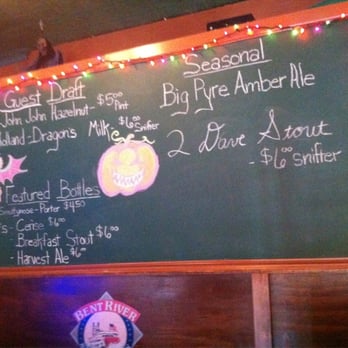 Guest Draft
John John Hazelnut - $5.00 Pint
Holland - Dragon's Milk $6.00 Snifter
Featured Bottles
Smuttynose - Porter $4.50
's - Cerise $6.00
Breakfast Stout $6.00
- Harvest Ale $6.00
Seasonal
Big Pyre Amber Ale
2 Dave Stout
- $6.00 snifter
BENT RIVER